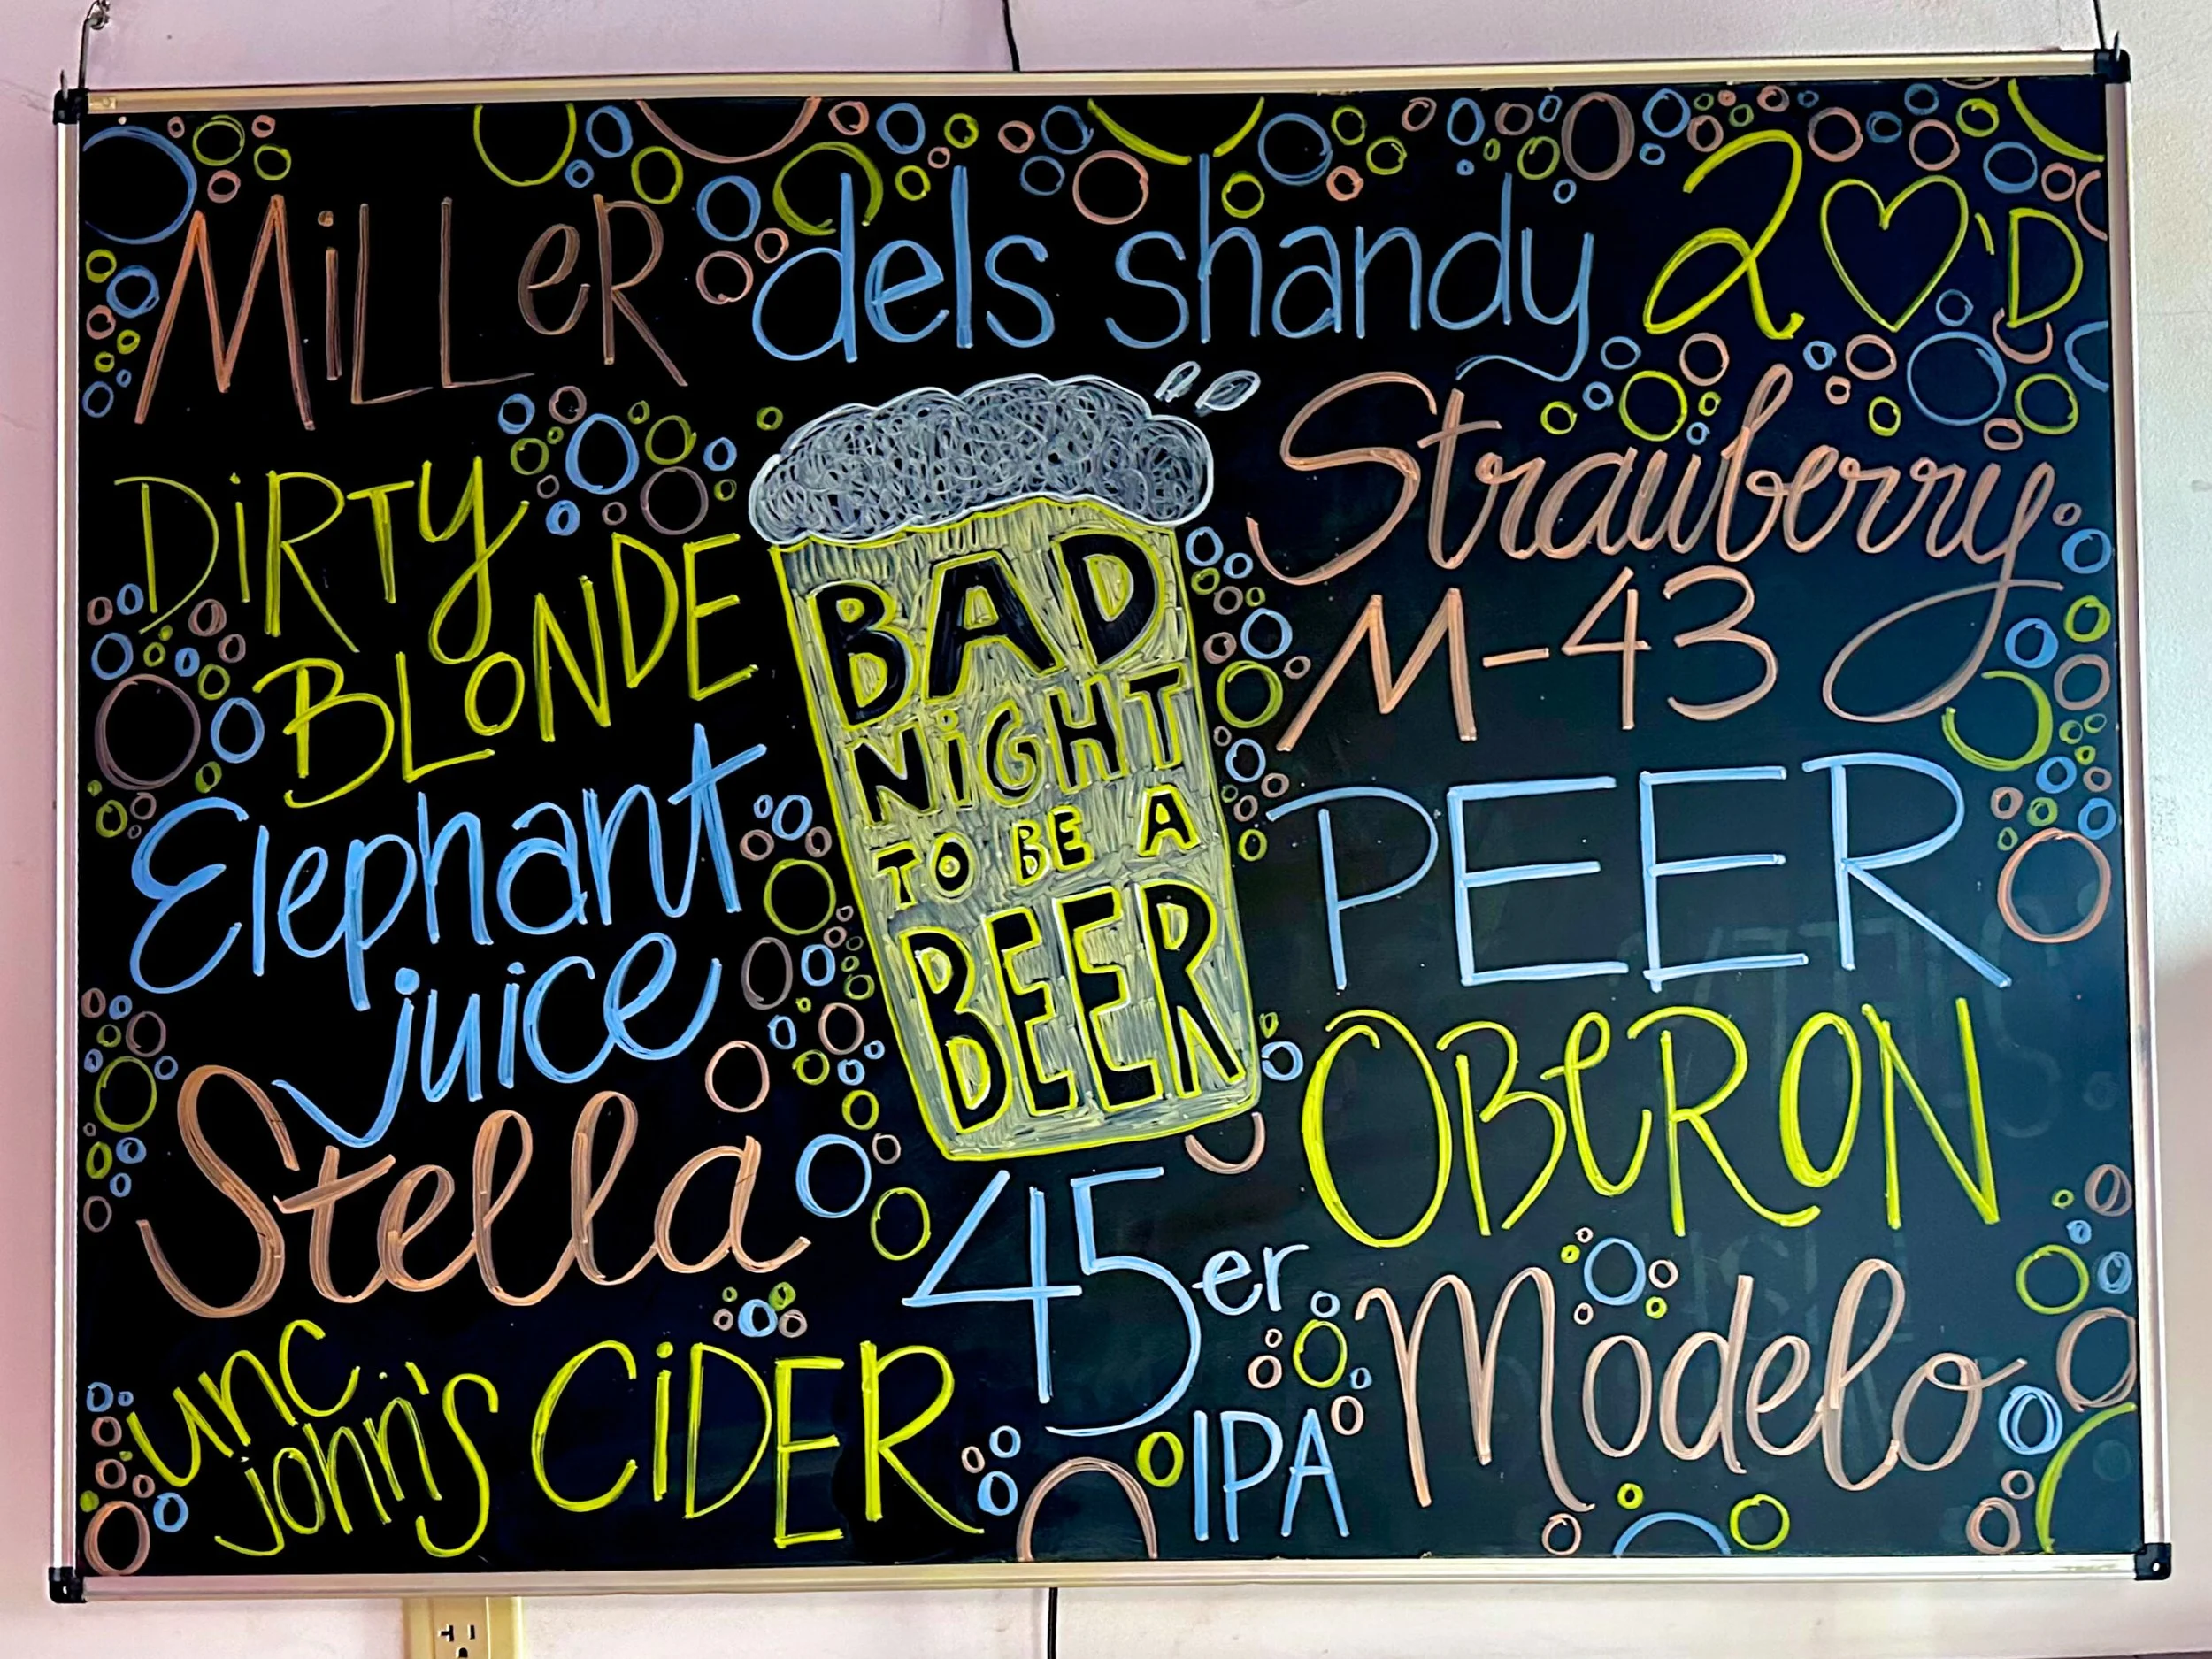 MiLLeR
dels shandy
2♡'D
DiRTy
BLONDE
Strawberry
M-43
BAD
NiGHT
TO BE A
BEER
Elephant
juice
PEER
Stella
OBeRON
45er
IPA
Modelo
unc
john's CiDER